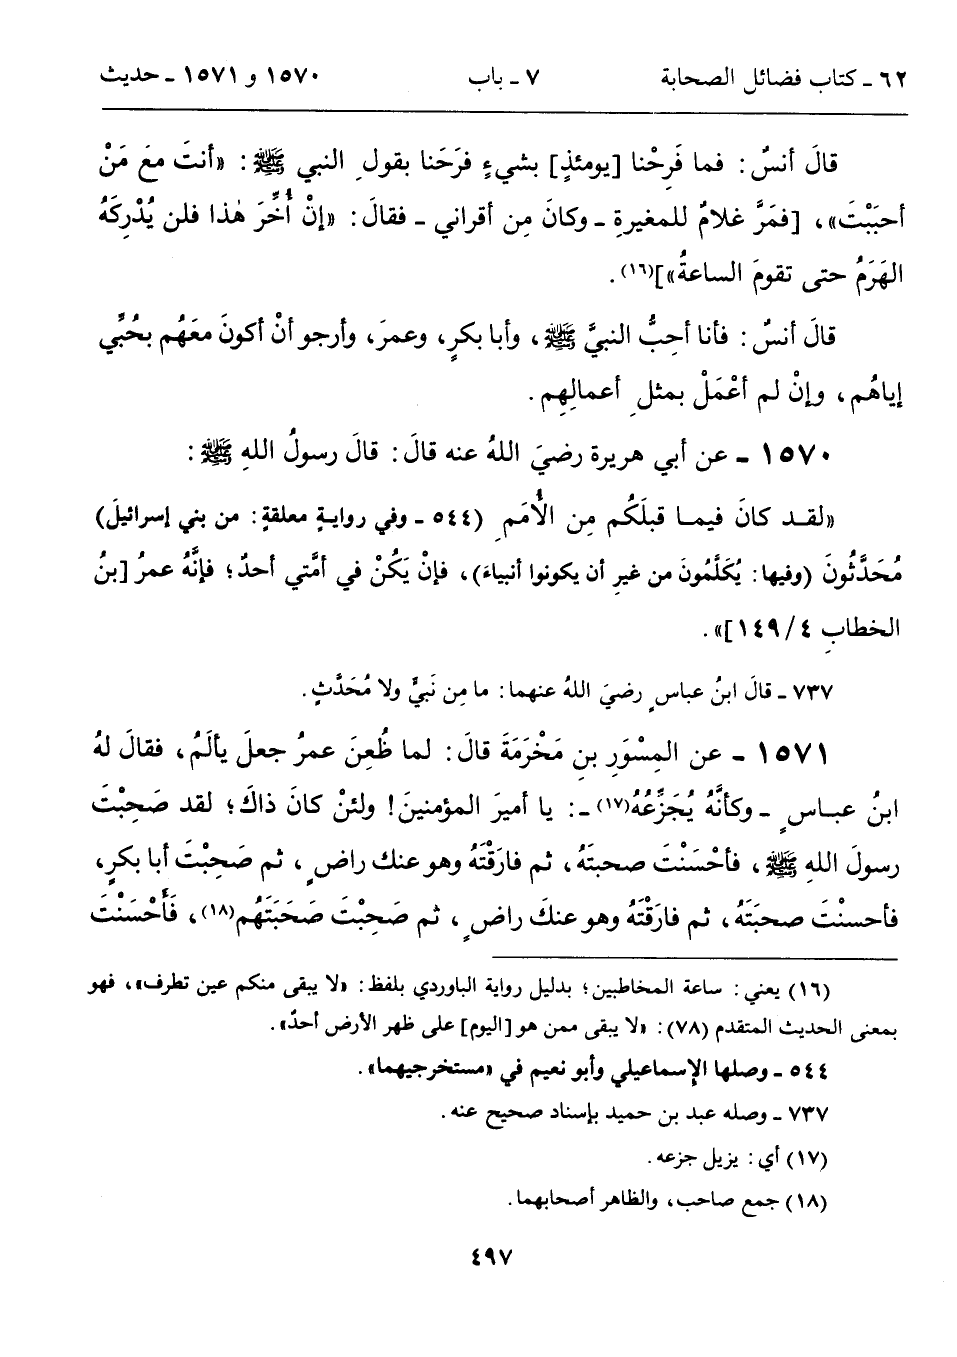 ٦٢ ـ كتاب فضائل الصحابة ٧ ـ باب ١٥٧٠ و ١٥٧١ ـ حديث
قالَ أنسٌ: فما فَرِحْنا [يومئذٍ] بشيءٍ فرَحَنا بقولِ النبي ﷺ: «أنتَ معَ مَنْ
أحبَبْتَ»، [فمَرَّ غلامٌ للمغيرةِ ـ وكانَ مِن أقراني ـ فقالَ: «إنْ أُخِّرَ هٰذا فلن يُدْرِكَهُ
الهَرَمُ حتى تقومَ الساعةُ»](١٦).
قالَ أنسٌ: فأنا أحِبُّ النبيَّ ﷺ، وأبا بكرٍ، وعمرَ، وأرجو أنْ أكونَ معَهُم بحُبِّي
إياهُم، وإنْ لم أعْمَلْ بمثلِ أعمالِهِم.
١٥٧٠ ـ عن أبي هريرة رضيَ اللهُ عنه قالَ: قالَ رسولُ اللهِ ﷺ:
«لقـد كانَ فيمـا قبلَكُم مِن الأُمَمِ (٥٤٤ ـ وفي روايـةٍ معلقةٍ: من بني إسرائيلَ)
مُحَدَّثُونَ (وفيها: يُكَلَّمُونَ من غيرِ أن يكونوا أنبياءَ)، فإنْ يَكُنْ في أمَّتي أحدٌ؛ فإنَّهُ عمرُ [بنُ
الخطابِ ٤/ ١٤٩]».
٧٣٧ ـ قالَ ابنُ عباسٍ رضيَ اللهُ عنهما: ما مِن نَبيٍّ ولا مُحَدَّثٍ.
١٥٧١ ـ عن المِسْوَرِ بنِ مَخْرَمَةَ قالَ: لما طُعِنَ عمرُ جعلَ يألَمُ، فقالَ لهُ
ابنُ عبـاسٍ ـ وكأنَّهُ يُجَزِّعُهُ(١٧) ـ: يا أميرَ المؤمنينَ! ولئنْ كانَ ذاكَ؛ لقد صَحِبْتَ
رسولَ اللهِ ﷺ، فأحْسَنْتَ صحبتَهُ، ثم فارَقْتَهُ وهو عنك راضٍ، ثم صَحِبْتَ أبا بكرٍ،
فأحسنْتَ صحبَتَهُ، ثم فارَقْتَهُ وهو عنكَ راضٍ، ثم صَحِبْتَ صَحَبَتَهُم(١٨)، فَأَحْسَنْتَ
(١٦) يعني: ساعة المخاطبين؛ بدليل رواية الباوردي بلفظ: «لا يبقى منكم عين تطرف»، فهو
بمعنى الحديث المتقدم (٧٨): «لا يبقى ممن هو [اليوم] على ظهر الأرض أحدٌ».
٥٤٤ ـ وصلها الإسماعيلي وأبو نعيم في «مستخرجيهما».
٧٣٧ ـ وصله عبد بن حميد بإسناد صحيح عنه.
(١٧) أي: يزيل جزعه.
(١٨) جمع صاحب، والظاهر أصحابهما.
٤٩٧